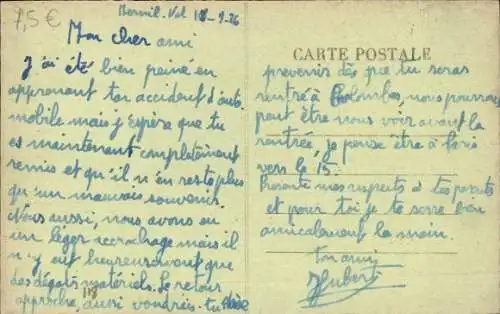 7,5 €
Mervil. Val 18-9-36
Mon cher ami
J'ai été bien peiné en
apprenant ton accident d'auto
mobile mais j'espère que tu
es maintenant complètement
remis et qu'il n'en reste plus
qu'un mauvais souvenir.
Nous aussi, nous avons eu
un léger accrochage mais il
n'y eut heureusement que
des dégats matériels. Le retour
approche, aussi voudrais-tu
118
CARTE POSTALE
prevenir dès que tu seras
rentré à Colombes, nous pourrons
peut être nous voir avant la
rentrée, je pense être à Paris
vers le 15.
Présente mes respects à tes parents
et pour toi je te serre bien
amicalement la main.
ton ami
Hubert